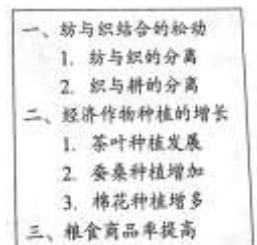 一、纺与织结合的松动
1. 纺与织的分离
2. 织与耕的分离
二、经济作物种植的增长
1. 茶叶种植发展
2. 蚕桑种植增加
3. 棉花种植增多
三、粮食商品率提高